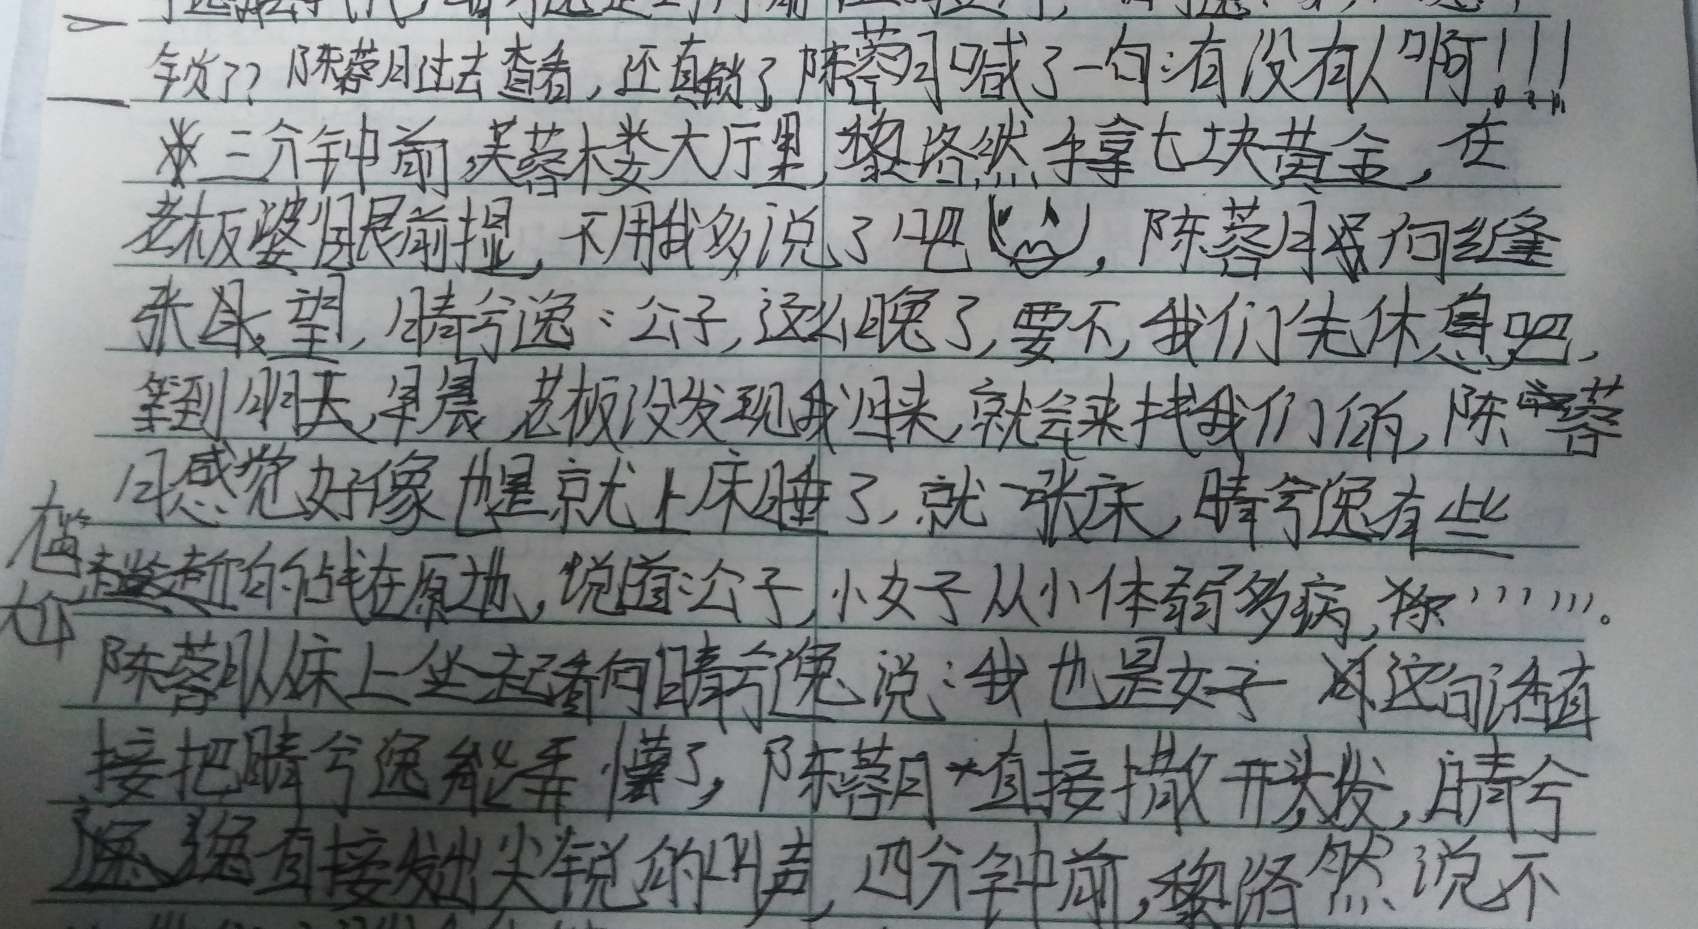 锁了？陈蓉月过去查看，还真锁了陈蓉月喊了一句：有没有人啊！！！
三分钟前，芙蓉楼大厅里，黎洛然手拿七块黄金，在
老板婆眼前提，不用我多说了吧，陈蓉月向缝
张望，晴兮逸：公子，这么晚了，要不，我们先休息吧，
等到明天，早晨老板没发现我归来，就会来找我们的，陈蓉
月感觉好像也是就上床睡了，就一张床，晴兮逸有些
尴尬的站在原地，说道：公子，小女子从小体弱多病，你……。
陈蓉月从床上坐起看向晴兮逸说：我也是女子 这句话直
接把晴兮逸能弄懵了，陈蓉月直接撒开头发，晴兮
逸直接发出尖锐的叫声，四分钟前，黎洛然说不